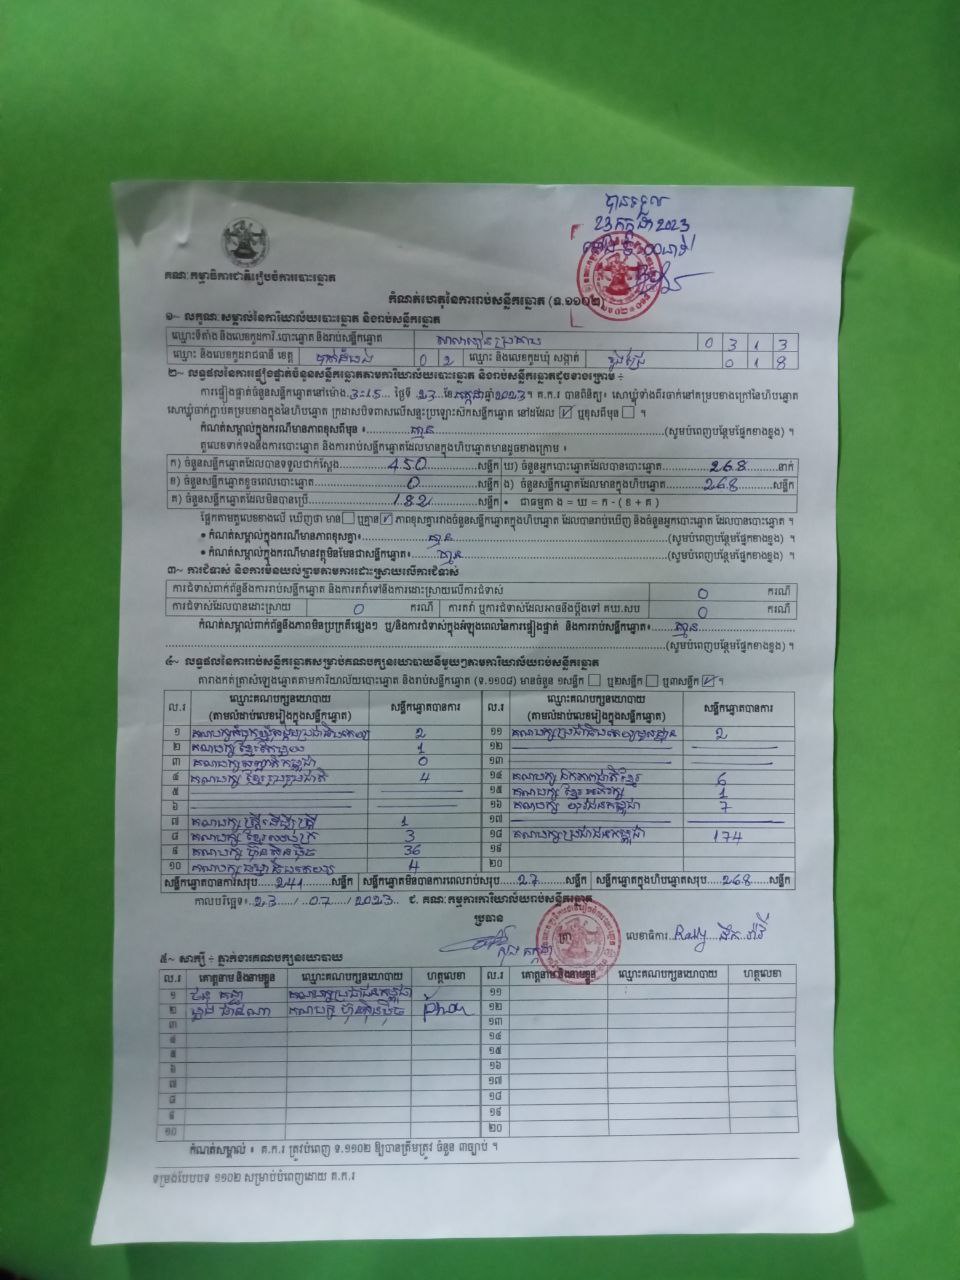 បានទទួល
23 កក្កដា 2023
គណៈកម្មាធិការជាតិរៀបចំការបោះឆ្នោត
កំណត់ហេតុនៃការរាប់សន្លឹកឆ្នោត (ទ.១១០២)
១~ លក្ខណៈសម្គាល់នៃការិយាល័យបោះឆ្នោត និងរាប់សន្លឹកឆ្នោត
ឈ្មោះទីតាំង និងលេខកូដការិ.បោះឆ្នោត និងរាប់សន្លឹកឆ្នោត 0 3 1 3
ឈ្មោះ និងលេខកូដរាជធានី ខេត្ត បាត់ដំបង 0 2 ឈ្មោះ និងលេខកូដឃុំ សង្កាត់ 0 1 8
២~ លទ្ធផលនៃការផ្ទៀងផ្ទាត់ចំនួនសន្លឹកឆ្នោតតាមការិយាល័យបោះឆ្នោត និងរាប់សន្លឹកឆ្នោតដូចខាងក្រោម ÷
ការផ្ទៀងផ្ទាត់ចំនួនសន្លឹកឆ្នោតនៅម៉ោង 3:15 ថ្ងៃទី 23 ខែ កក្កដា ឆ្នាំ 2023។ គ.ក.រ បានពិនិត្យ៖ សោឃ្លុំទាំងពីរចាក់នៅគម្របខាងក្រៅនៃហិបឆ្នោត
សោឃ្លុំចាក់ភ្ជាប់គម្របខាងក្នុងនៃហិបឆ្នោត ក្រដាសបិទពាសលើសន្ទះប្រឡោះស៊កសន្លឹកឆ្នោត នៅដដែល ☑ ឬខុសពីមុន ☐ ។
កំណត់សម្គាល់ក្នុងករណីមានភាពខុសពីមុន ៖ គ្មាន (សូមបំពេញបន្ថែមផ្នែកខាងខ្នង) ។
តួលេខទាក់ទងនឹងការបោះឆ្នោត និងការរាប់សន្លឹកឆ្នោតដែលមានក្នុងហិបឆ្នោតមានដូចខាងក្រោម ៖
ក) ចំនួនសន្លឹកឆ្នោតដែលបានទទួលជាក់ស្តែង 450 សន្លឹក ឃ) ចំនួនអ្នកបោះឆ្នោតដែលបានបោះឆ្នោត 268 នាក់
ខ) ចំនួនសន្លឹកឆ្នោតខូចពេលបោះឆ្នោត 0 សន្លឹក ង) ចំនួនសន្លឹកឆ្នោតដែលមានក្នុងហិបឆ្នោត 268 សន្លឹក
គ) ចំនួនសន្លឹកឆ្នោតដែលមិនបានប្រើ 182 សន្លឹក • ជាធម្មតា ង = ឃ = ក - ( ខ + គ )
ផ្អែកតាមតួលេខខាងលើ ឃើញថា មាន ☐ ឬគ្មាន ☑ ភាពខុសគ្នារវាងចំនួនសន្លឹកឆ្នោតក្នុងហិបឆ្នោត ដែលបានរាប់ឃើញ និងចំនួនអ្នកបោះឆ្នោត ដែលបានបោះឆ្នោត ។
• កំណត់សម្គាល់ក្នុងករណីមានភាពខុសគ្នា៖ គ្មាន (សូមបំពេញបន្ថែមផ្នែកខាងខ្នង) ។
• កំណត់សម្គាល់ក្នុងករណីមានវត្ថុមិនមែនជាសន្លឹកឆ្នោត៖ គ្មាន (សូមបំពេញបន្ថែមផ្នែកខាងខ្នង) ។
៣~ ការជំទាស់ និងការមិនយល់ព្រមតាមការដោះស្រាយលើការជំទាស់
ការជំទាស់ពាក់ព័ន្ធនឹងការរាប់សន្លឹកឆ្នោត និងការតវ៉ាទៅនឹងការដោះស្រាយលើការជំទាស់ 0 ករណី
ការជំទាស់ដែលបានដោះស្រាយ 0 ករណី ការតវ៉ា ឬការជំទាស់ដែលអាចនឹងប្តឹងទៅ គឃ.សប 0 ករណី
កំណត់សម្គាល់ពាក់ព័ន្ធនឹងភាពមិនប្រក្រតីផ្សេងៗ ឬ/និងការជំទាស់ក្នុងអំឡុងពេលនៃការផ្ទៀងផ្ទាត់ និងការរាប់សន្លឹកឆ្នោត៖ គ្មាន
(សូមបំពេញបន្ថែមផ្នែកខាងខ្នង) ។
៤~ លទ្ធផលនៃការរាប់សន្លឹកឆ្នោតសម្រាប់គណបក្សនយោបាយនីមួយៗតាមការិយាល័យរាប់សន្លឹកឆ្នោត
តារាងកត់ត្រាសំឡេងឆ្នោតតាមការិយាល័យបោះឆ្នោត និងរាប់សន្លឹកឆ្នោត (ទ.១១០៨) មានចំនួន ១សន្លឹក ☐ ឬ២សន្លឹក ☐ ឬ៣សន្លឹក ☑ ។
ល.រ ឈ្មោះគណបក្សនយោបាយ (តាមលំដាប់លេខរៀងក្នុងសន្លឹកឆ្នោត) សន្លឹកឆ្នោតបានការ ល.រ ឈ្មោះគណបក្សនយោបាយ (តាមលំដាប់លេខរៀងក្នុងសន្លឹកឆ្នោត) សន្លឹកឆ្នោតបានការ
១ 2 ១១ គណបក្សប្រជាធិបតេយ្យមូលដ្ឋាន 2
២ គណបក្ស ខ្មែរតែមួយ 1 ១២
៣ គណបក្សសញ្ជាតិកម្ពុជា 0 ១៣
៤ គណបក្ស ខ្មែររួបរួមជាតិ 4 ១៤ គណបក្ស ឯកភាពជាតិខ្មែរ 6
៥ ១៥ គណបក្ស ខ្មែរអភិរក្ស 1
៦ ១៦ គណបក្ស យុវជនកម្ពុជា 7
៧ គណបក្ស ស្ត្រីដើម្បីស្ត្រី 1 ១៧
៨ គណបក្ស ខ្មែរឈប់ក្រ 3 ១៨ គណបក្សប្រជាជនកម្ពុជា 174
៩ គណបក្ស ហ៊្វុនស៊ិនប៉ិច 36 ១៩
១០ គណបក្ស ធម្មាធិបតេយ្យ 4 ២០
សន្លឹកឆ្នោតបានការសរុប 241 សន្លឹក សន្លឹកឆ្នោតមិនបានការពេលរាប់សរុប 27 សន្លឹក សន្លឹកឆ្នោតក្នុងហិបឆ្នោតសរុប 268 សន្លឹក
កាលបរិច្ឆេទ៖ 23 / 07 / 2023 ជ. គណៈកម្មការការិយាល័យរាប់សន្លឹកឆ្នោត
ប្រធាន
ត្រា លេខាធិការ
៥~ សាក្សី ÷ ភ្នាក់ងារគណបក្សនយោបាយ
ល.រ គោត្តនាម និងនាមខ្លួន ឈ្មោះគណបក្សនយោបាយ ហត្ថលេខា ល.រ គោត្តនាម និងនាមខ្លួន ឈ្មោះគណបក្សនយោបាយ ហត្ថលេខា
១ គណបក្សប្រជាជនកម្ពុជា ១១
២ គណបក្ស ហ៊្វុនស៊ិនប៉ិច ១២
៣ ១៣
៤ ១៤
៥ ១៥
៦ ១៦
៧ ១៧
៨ ១៨
៩ ១៩
១០ ២០
កំណត់សម្គាល់ ៖ គ.ក.រ ត្រូវបំពេញ ទ.១១០២ ឱ្យបានត្រឹមត្រូវ ចំនួន ៣ច្បាប់ ។
ទម្រង់បែបបទ ១១០២ សម្រាប់បំពេញដោយ គ.ក.រ